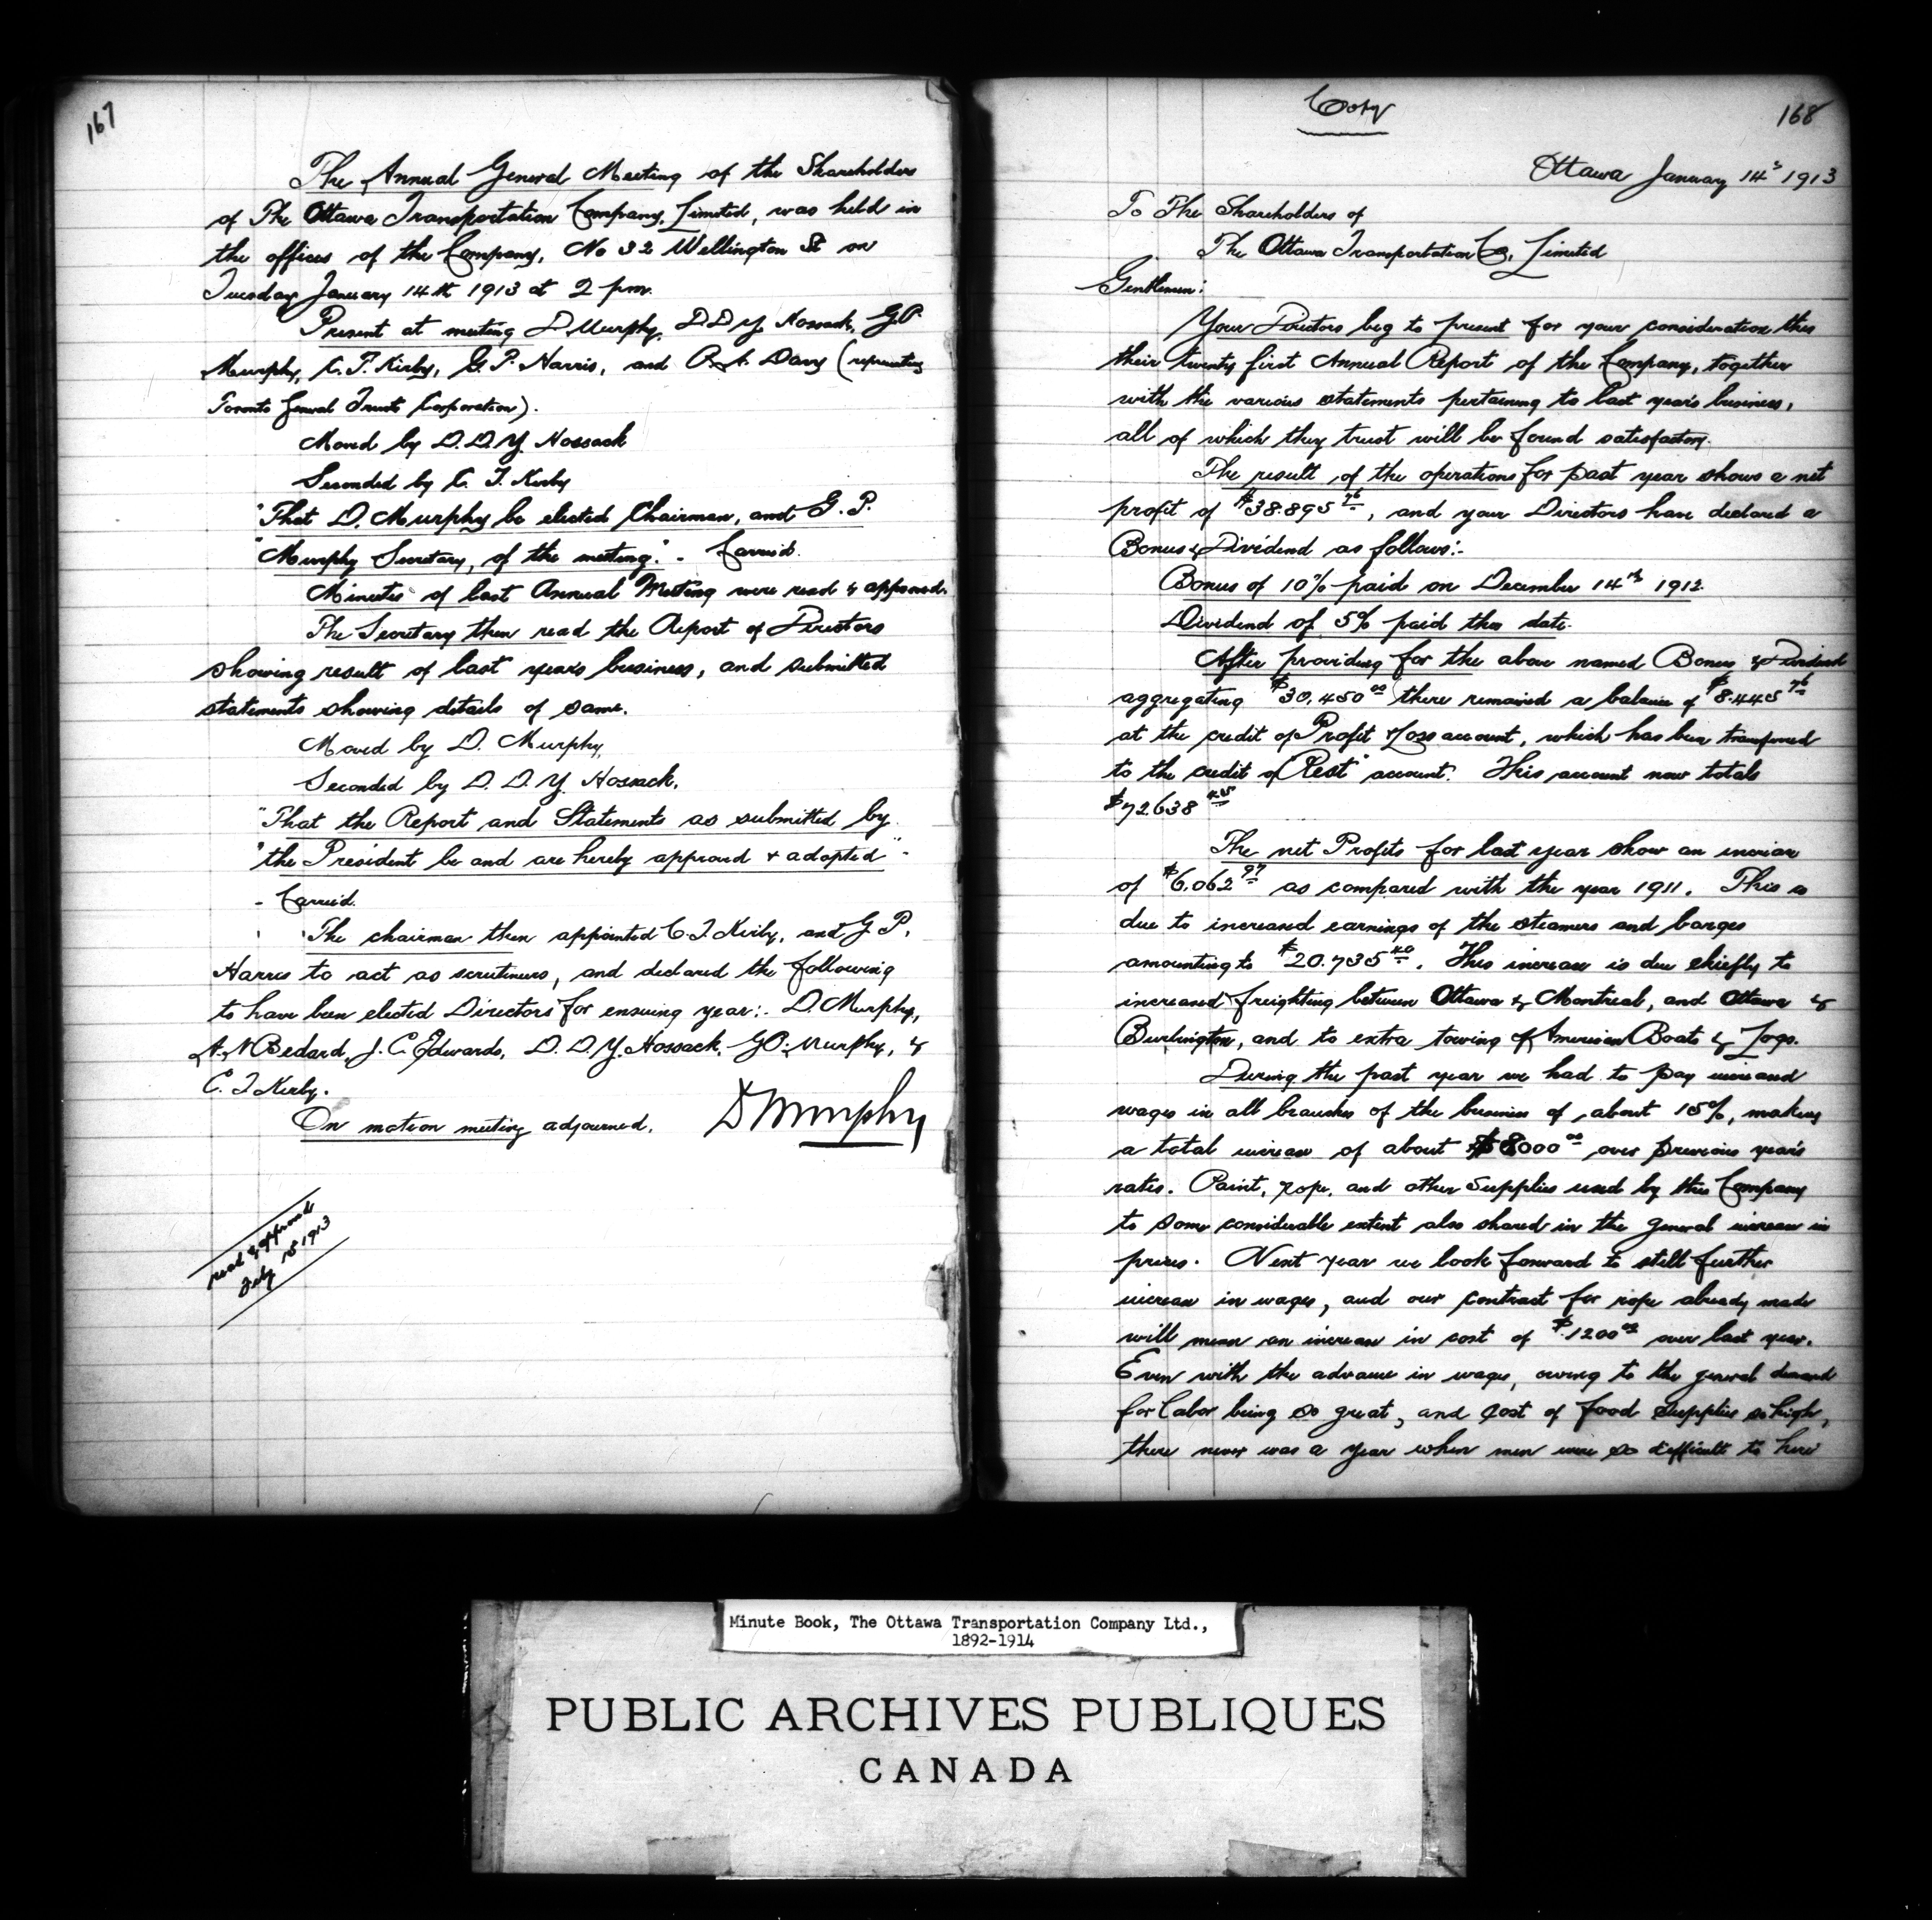 167
The Annual General Meeting of the Shareholders
of The Ottawa Transportation Company, Limited, was held in
the offices of the Company, No 32 Wellington St on
Tuesday January 14th 1913 at 2 pm.
Present at meeting D. Murphy, D. D. Y. Hossack, G. P.
Murphy, C. T. Kirby, G. P. Harris, and Davy (representing
Toronto General Trusts Corporation).
Moved by D. D. Y. Hossack
Seconded by C. T. Kirby
"That D. Murphy be elected Chairman, and G. P.
"Murphy Secretary, of the meeting." - Carried.
Minutes of last Annual Meeting were read & approved.
The Secretary then read the Report of Directors
showing result of last years business, and submitted
statements showing details of same.
Moved by D. Murphy,
Seconded by D. D. Y. Hossack.
"That the Report and Statements as submitted by
"the President be and are hereby approved + adopted" -
- Carried.
The chairman then appointed C. T. Kirby, and G. P.
Harris to act as scrutineers, and declared the following
to have been elected Directors for ensuing year:- D. Murphy,
A. N Bedard, J. C. Edwards, D. D. Y. Hossack, G P. Murphy, &
C. T Kirby.
On motion meeting adjourned. D Murphy
read & approved
July 15 1913
Copy
168
Ottawa January 14th 1913
To The Shareholders of
The Ottawa Transportation Co, Limited
Gentlemen:
Your Directors beg to present for your consideration this
their twenty first Annual Report of the Company, together
with the various statements pertaining to last year's business,
all of which they trust will be found satisfactory.
The result of the operations for past year shows a net
profit of $38.895 76, and your Directors have declared a
Bonus & Dividend as follows:-
Bonus of 10% paid on December 14th 1912.
Dividend of 5% paid this date.
After providing for the above named Bonus & Dividend
aggregating $30,450 00 there remained a balance of $8.445 76
at the credit of Profit & Loss account, which has been transferred
to the credit of "Rest" account. This account now totals
$72.638 45
The net Profits for last year show an increase
of $6.062 97 as compared with the year 1911. This is
due to increased earnings of the steamers and barges
amounting to $20.735 40. This increase is due chiefly to
increased freighting between Ottawa & Montreal, and Ottawa &
Burlington, and to extra towing of American Boats & Logs.
During the past year we had to pay increased
wages in all branches of the business of about 15%, making
a total increase of about $8000 00 over previous year's
rates. Paint, rope, and other Supplies used by this Company
to some considerable extent also shared in the general increase in
prices. Next year we look forward to still further
increase in wages, and our contract for rope already made
will mean an increase in cost of $1200 00 over last year.
Even with the advance in wages, owing to the general demand
for labor being so great, and cost of food supplies so high,
there never was a year when men were so difficult to hire
Minute Book, The Ottawa Transportation Company Ltd.,
1892-1914
PUBLIC ARCHIVES PUBLIQUES
CANADA